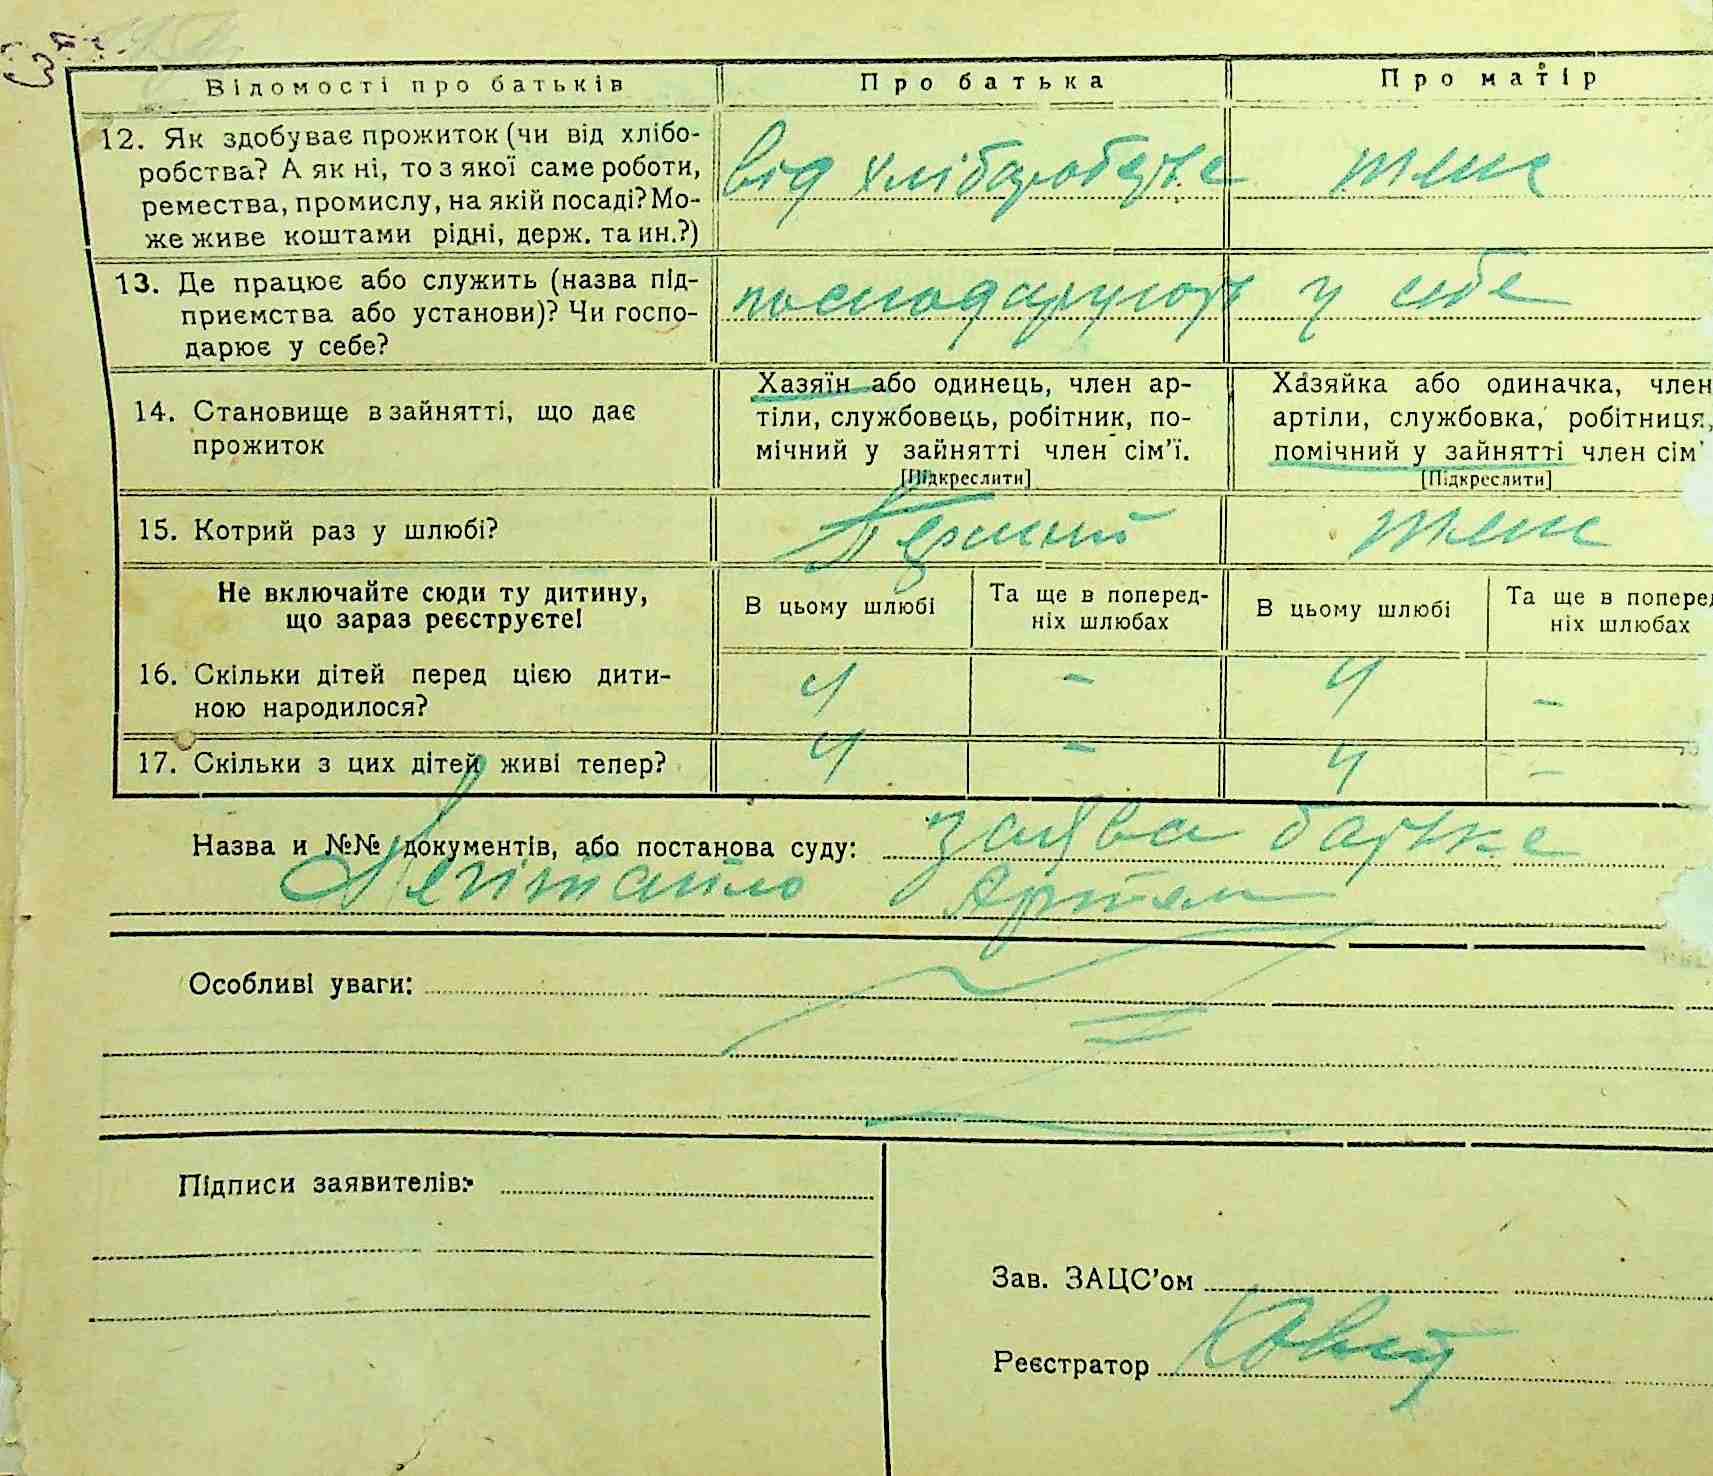 Відомості про батьків Про батька Про матір
12. Як здобуває прожиток (чи від хлібо-
робства? А як ні, то з якої саме роботи,
ремества, промислу, на якій посаді? Мо-
же живе коштами рідні, держ. та ин.?)
від хліборобства теж
13. Де працює або служить (назва під-
приємства або установи)? Чи госпо-
дарює у себе?
господарують у себе
14. Становище в зайнятті, що дає
прожиток
Хазяїн або одинець, член ар-
тіли, службовець, робітник, по-
мічний у зайнятті член сім'ї.
[Підкреслити]
Хазяйка або одиначка, член
артіли, службовка, робітниця,
помічний у зайнятті член сім'
[Підкреслити]
15. Котрий раз у шлюбі? Перший теж
Не включайте сюди ту дитину,
що зараз реєструєте!
В цьому шлюбі Та ще в поперед-
ніх шлюбах В цьому шлюбі Та ще в поперед
ніх шлюбах
16. Скільки дітей перед цією дити-
ною народилося?
4 - 4 -
17. Скільки з цих дітей живі тепер? 4 - 4 -
Назва и №№ документів, або постанова суду: заява батька
Артем
Особливі уваги:
Підписи заявителів:
Зав. ЗАЦС'ом
Реєстратор